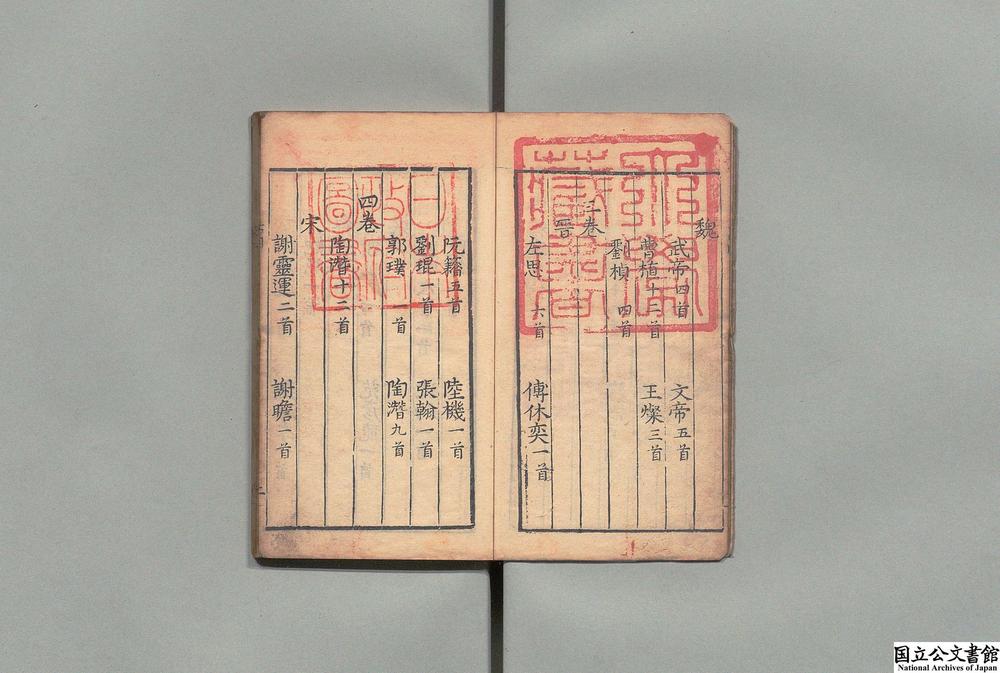 魏
武帝四首　文帝五首
曹植十二首　王燦三首
劉楨　四首
三卷
晉
左思　六首　傅休奕一首
阮籍五首　陸機一首
劉琨一首　張翰一首
郭璞　一首　陶潛九首
四卷
陶潛十二首
宋
謝靈運二首　謝瞻一首
日本
政府
圖書
国立公文書館
National Archives of Japan